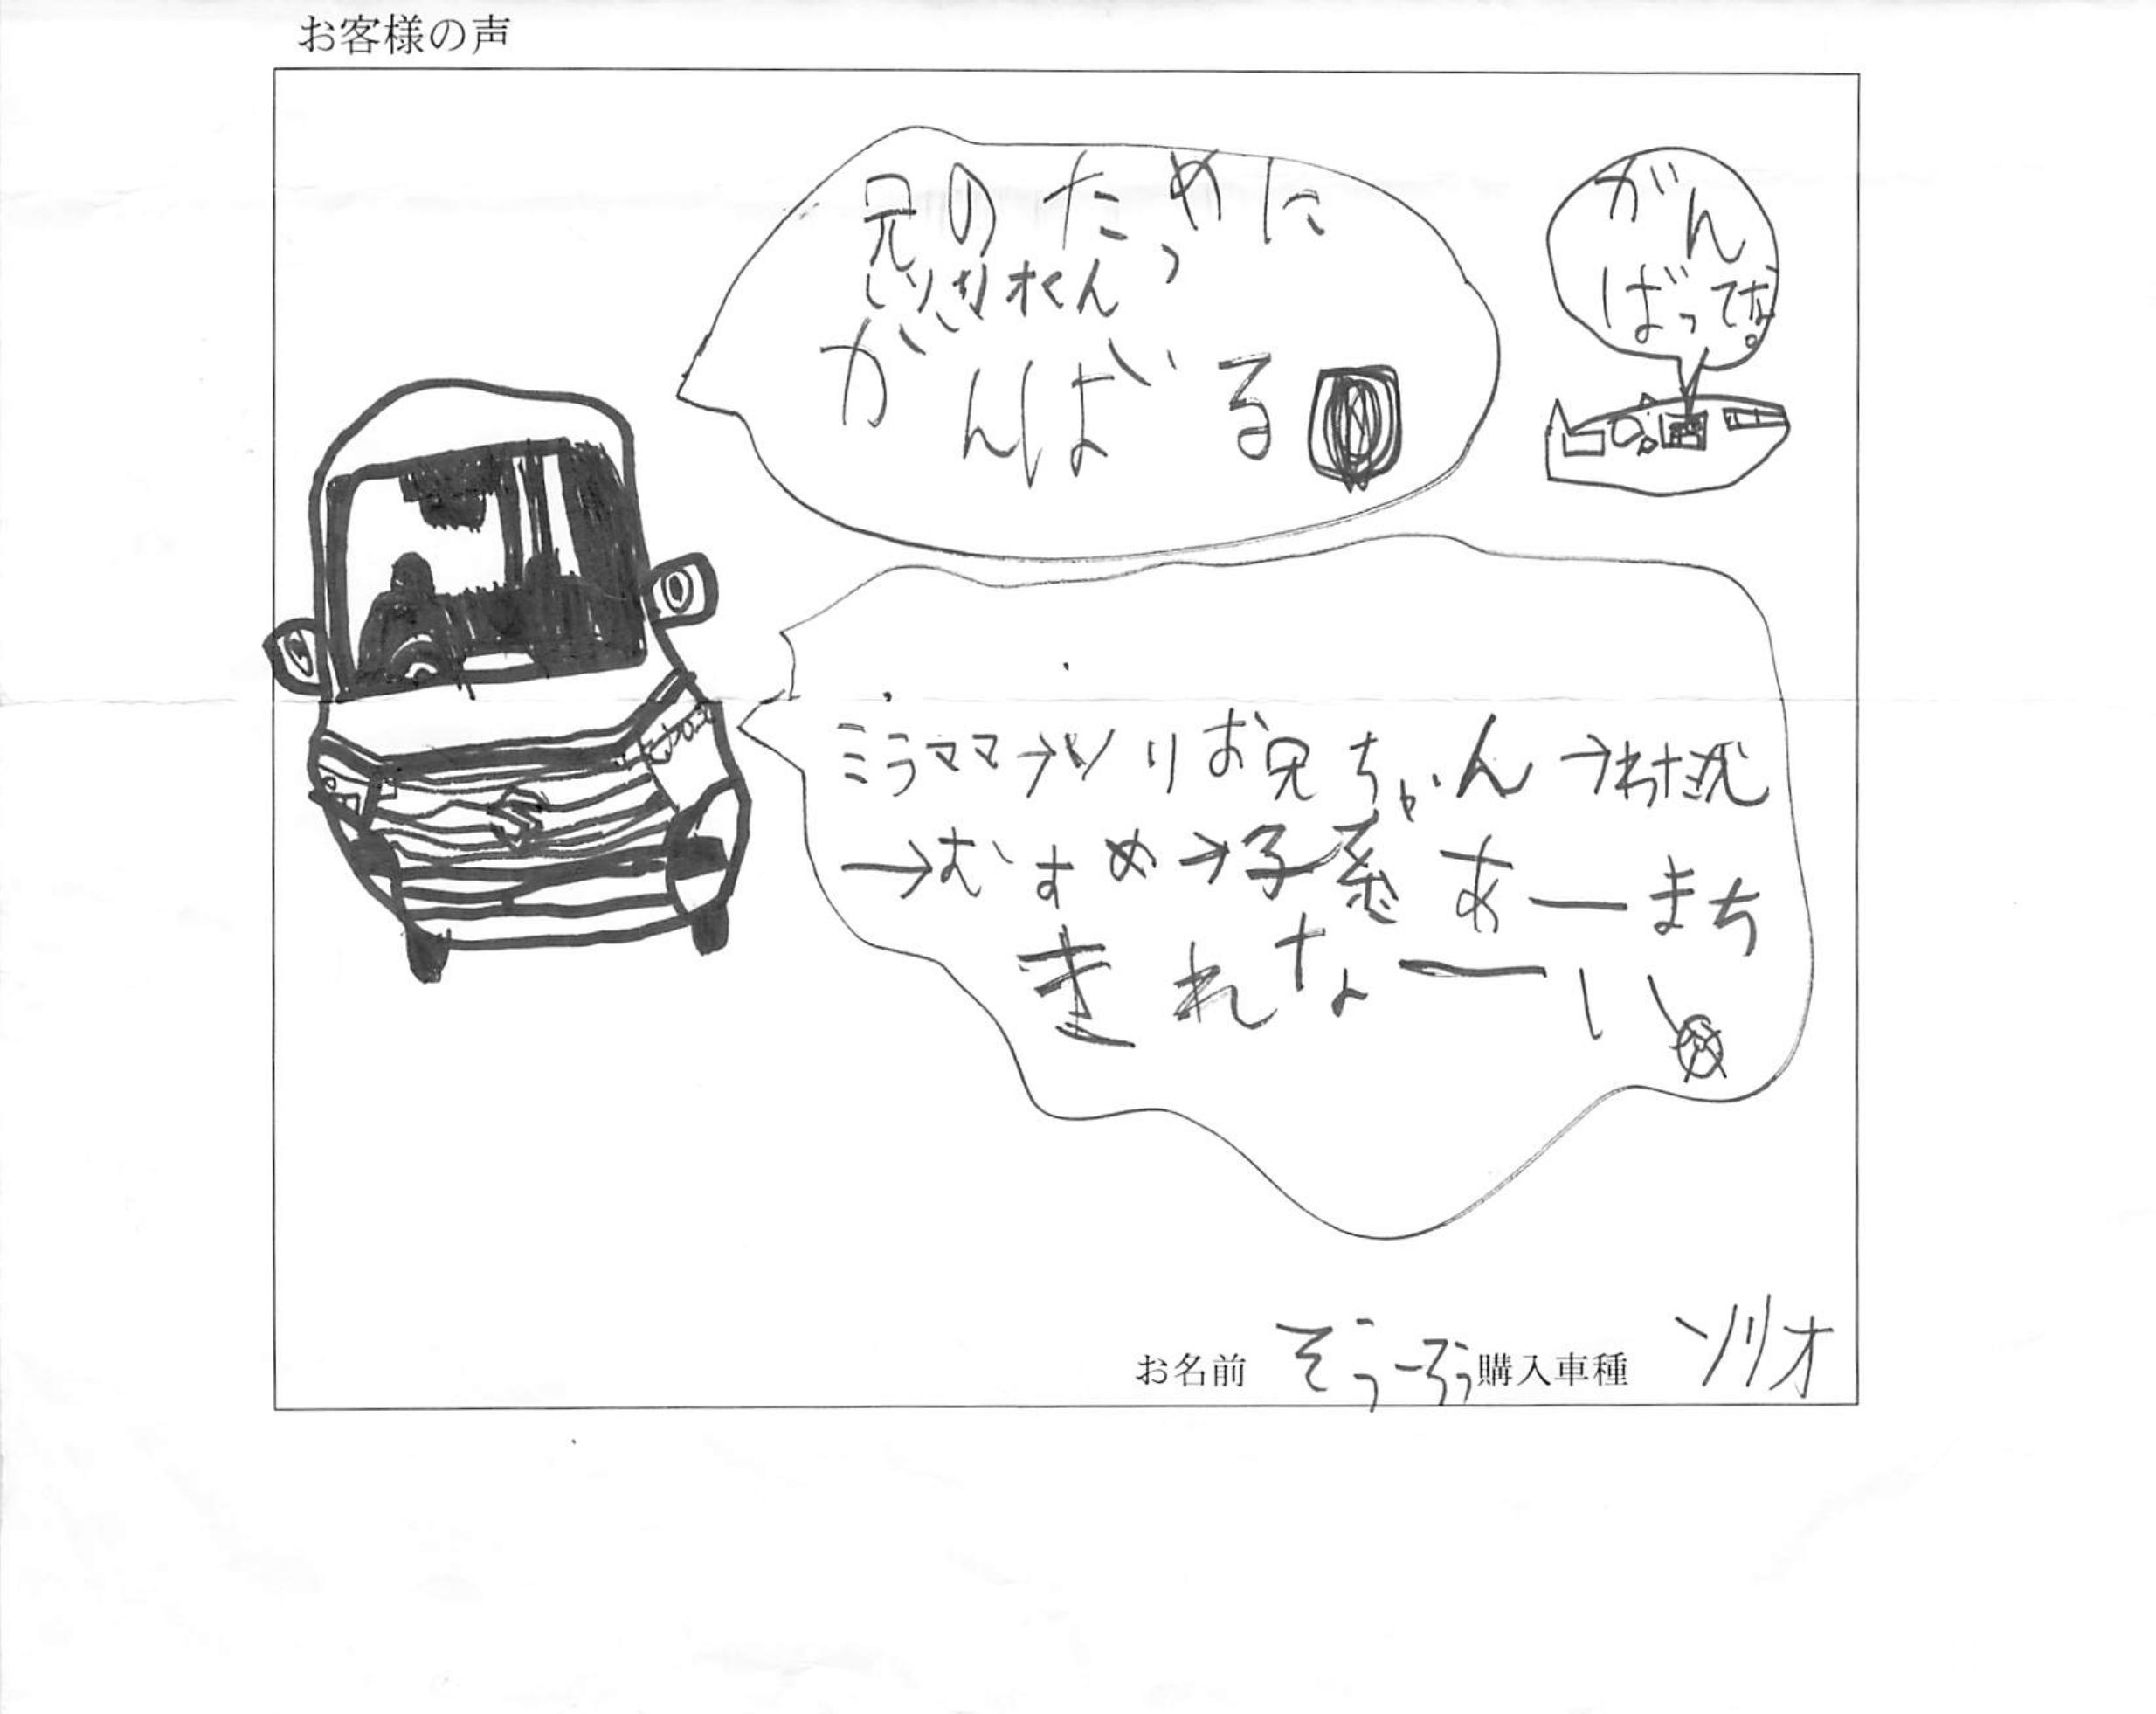 お客様の声
兄のために
がんばる
がん
ばってな。
ミラママ→ソリお兄ちゃん→
→むすめ→子孫 あーまち
きれなーい
お名前 そうーろう 購入車種 ソリオ